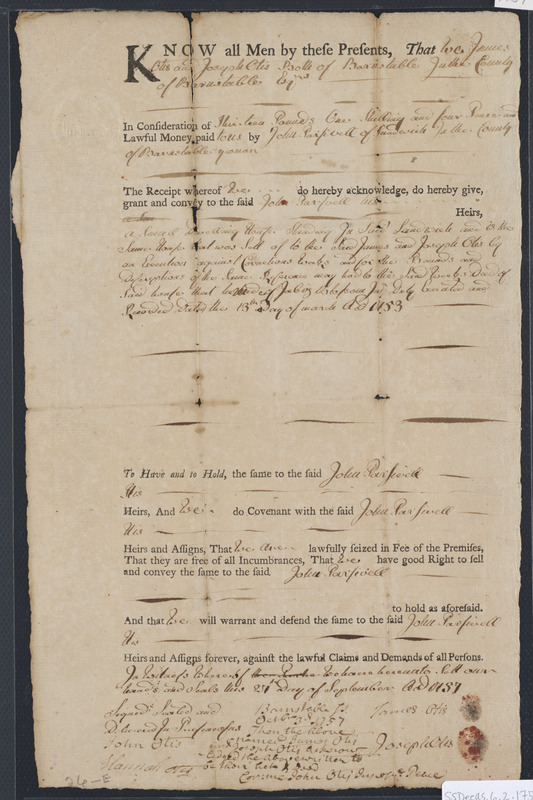 KNOW all Men by these Presents, That We James
Otis and Joseph Otis Both of Barnstable In the County
of Barnstable Esqrs
In Consideration of Thirteen Pounds One Shilling and four Pence
Lawful Money paid to us by John Persivell of Sandwich In the County
of Barnstable yeoman
The Receipt whereof We do hereby acknowledge, do hereby give,
grant and convey to the said John Persivell His
Heirs,
a Sarting Dwelling House Standing In Said Sandwich and is the
Same House that was Sett of to the Said James and Joseph Otis by
an Execution against and for the Bounds and
Description of the Same Reference may be had to the Said Deed of
Said house
Recorded Dated the 13th Day of march AD 1753
To Have and to Hold, the same to the said John Persivell
His
Heirs, And We do Covenant with the said John Persivell
His
Heirs and Assigns, That We Are lawfully seized in Fee of the Premises,
That they are free of all Incumbrances, That We have good Right to sell
and convey the same to the said John Persivell
to hold as aforesaid.
And that We will warrant and defend the same to the said John Persivell
His
Heirs and Assigns forever, against the lawful Claims and Demands of all Persons.
In Witness Whereof We have hereunto Sett our
hands and Seals this 27th Day of September AD 1757
Signed Sealed and
Delivered In Presence of
John Otis
Hannah Otis
Barnstable Ss
Octbr 3d 1757
Then the Above
Named James Otis
and Joseph Otis Acknow
ledged the above written to
be their Act & Deed
Cor: me John Otis Jus of Peace
James Otis
Joseph Otis
26-E
SSDeeds.6.2.175